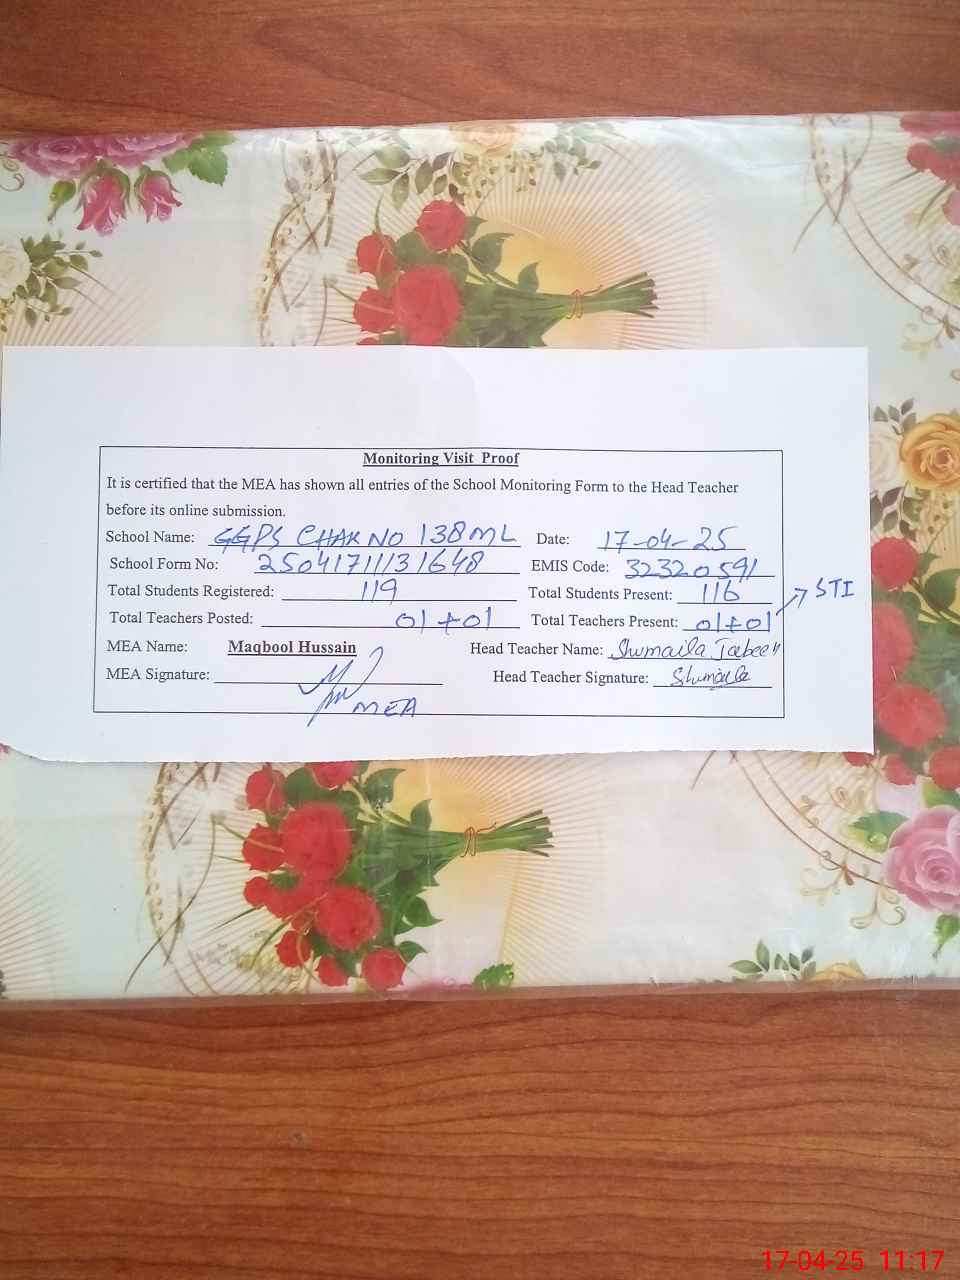 Monitoring Visit Proof
It is certified that the MEA has shown all entries of the School Monitoring Form to the Head Teacher
before its online submission.
School Name: GGPS CHAK NO 138ML Date: 17-04-25
School Form No: 25041711131648 EMIS Code: 32320591
Total Students Registered: 119 Total Students Present: 116
Total Teachers Posted: 01+01 Total Teachers Present: 01+01 → STI
MEA Name: Maqbool Hussain Head Teacher Name: Shumaila Jabeen
MEA Signature: Head Teacher Signature: Shumaila
MEA
17-04-25 11:17